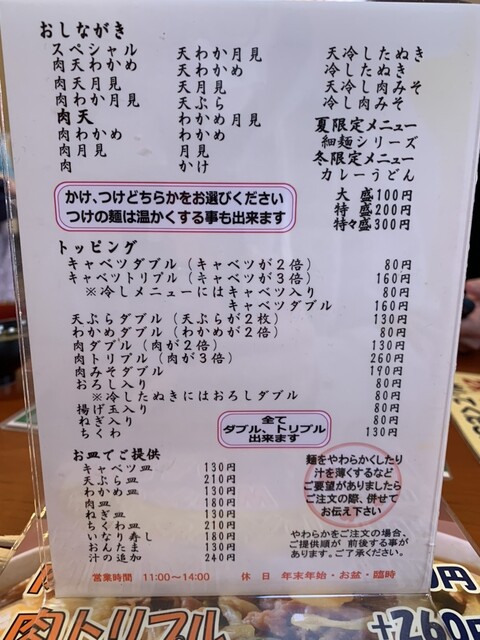 おしながき
スペシャル
肉天わかめ
肉天月見
肉わか月見
肉天
肉わかめ
肉月見
肉
天わか月見
天わかめ
天月見
天ぷら
わかめ月見
わかめ
月見
かけ
天冷したぬき
冷したぬき
天冷し肉みそ
冷し肉みそ
夏限定メニュー
細麺シリーズ
冬限定メニュー
カレーうどん
大盛100円
特盛200円
特々盛300円
かけ、つけどちらかをお選びください
つけの麺は温かくする事も出来ます
トッピング
キャベツダブル（キャベツが２倍） 80円
キャベツトリプル（キャベツが３倍） 160円
※冷しメニューにはキャベツ入り 80円
キャベツダブル 160円
天ぷらダブル（天ぷらが２枚） 130円
わかめダブル（わかめが２倍） 80円
肉ダブル（肉が２倍） 130円
肉トリプル（肉が３倍） 260円
肉みそダブル 190円
おろし入り 80円
※冷したぬきにはおろしダブル 80円
揚げ玉入り 80円
ねぎ入り 80円
ちくわ 130円
全て
ダブル、トリプル
出来ます
お皿でご提供
キャベツ皿 130円
天ぷら皿 210円
わかめ皿 130円
肉皿 180円
ねぎ皿 130円
ちくわ皿 210円
いなり寿し 180円
おんたま 130円
汁の追加 240円
麺をやわらかくしたり
汁を薄くするなど
ご要望がありましたら
ご注文の際、併せて
お伝え下さい
やわらかをご注文の場合、
ご提供順が前後する事が
あります。ご了承ください。
営業時間 11:00～14:00 休日 年末年始・お盆・臨時
肉トリプル +260円